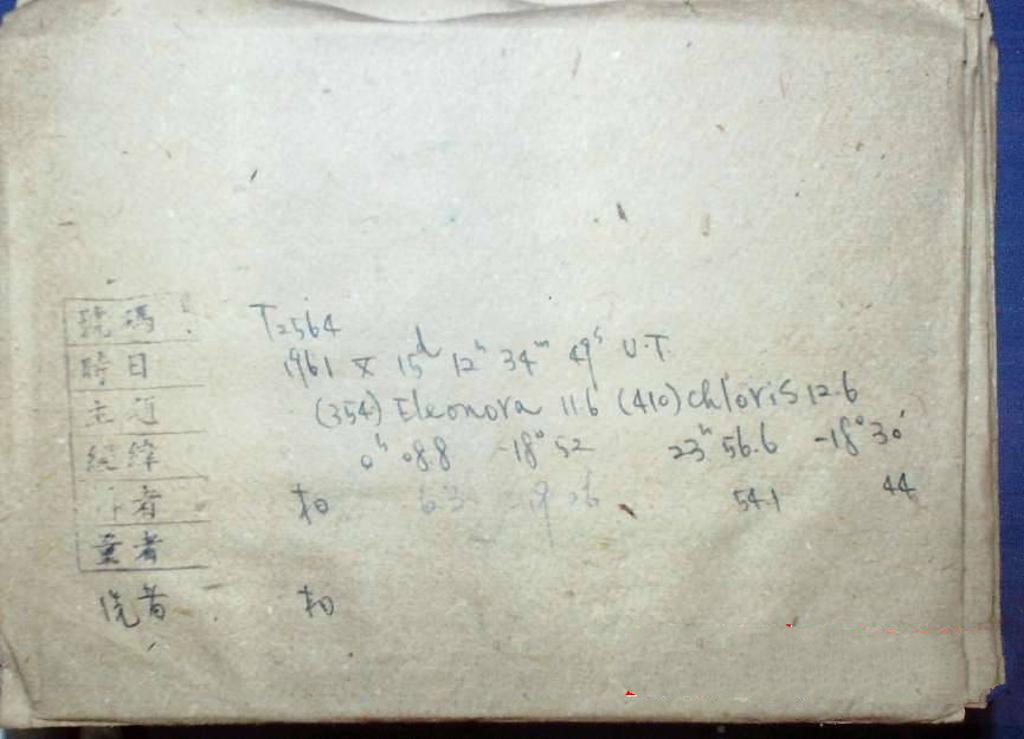 號碼 T2564
時日 1961 X 15d 12h 34m 49s U.T.
主題 (354) Eleonora 11.6 (410) chloris 12.6
經緯 0h 08.8 -18° 52 23h 56.6 -18° 30'
作者 柏 6.3 54.1 44
量者
洗者 柏